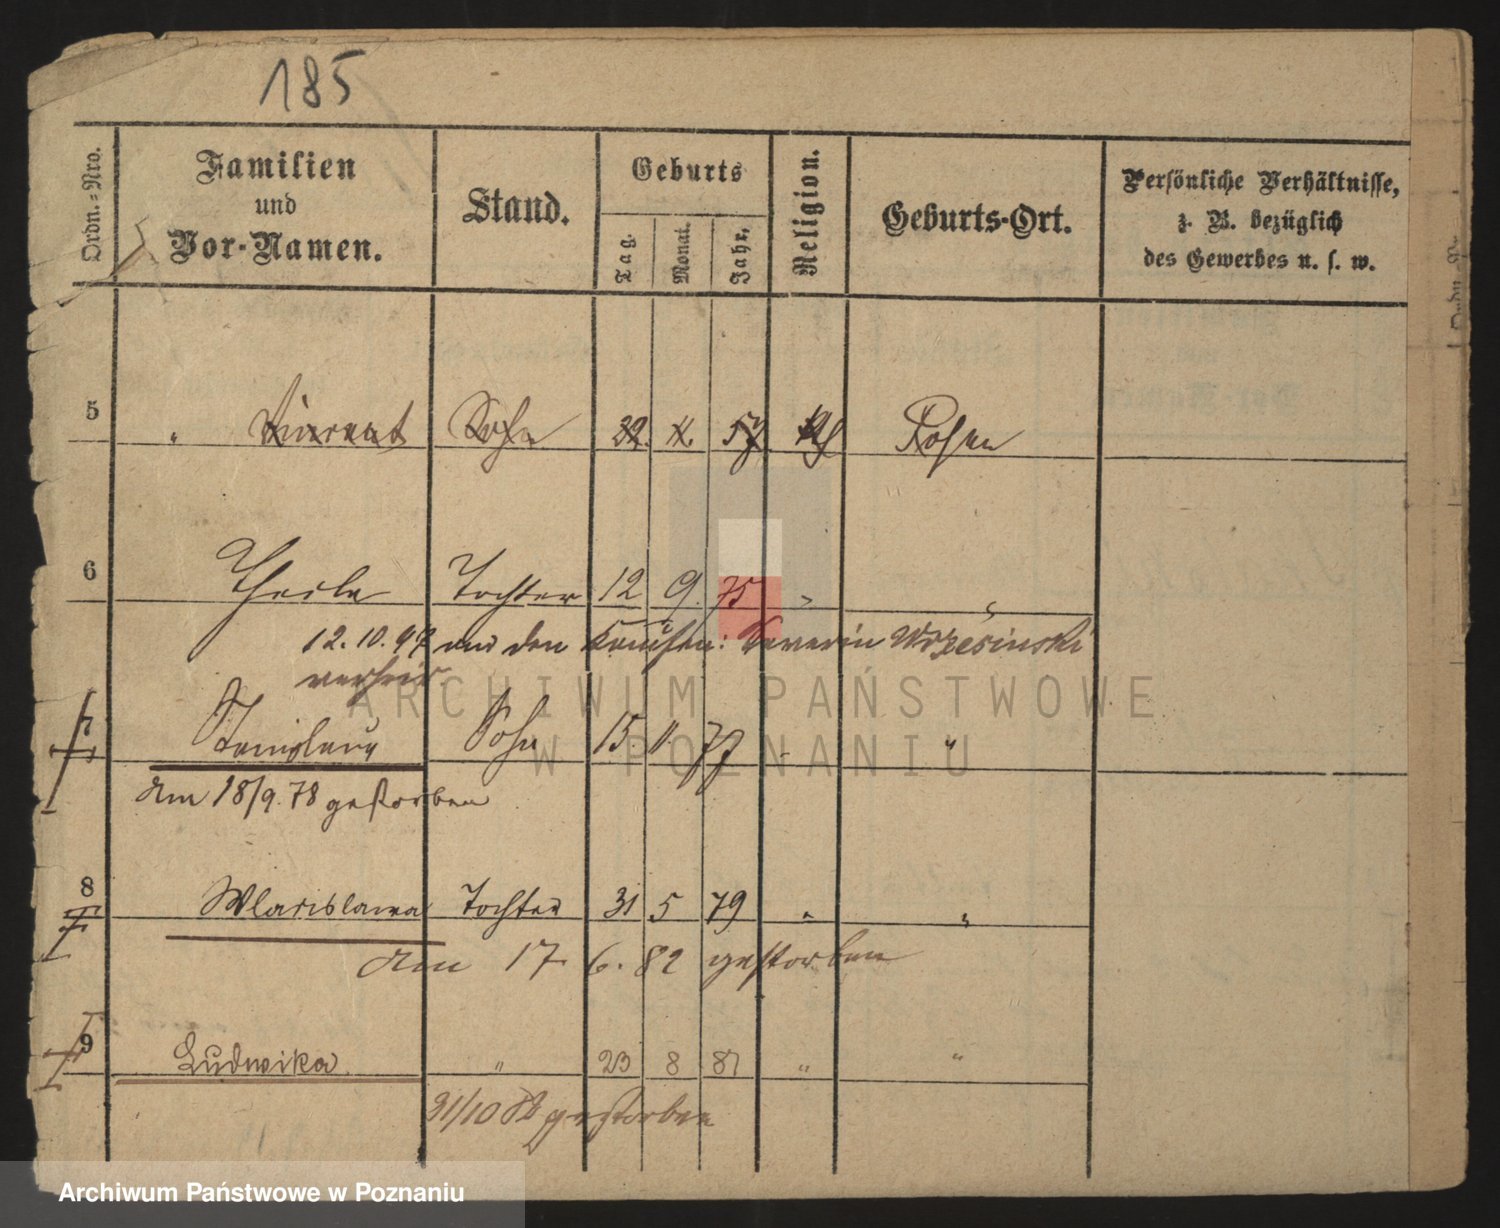 185
Ordn.-Nro.
Familien
und
Vor-Namen.
Stand.
Geburts
Tag.
Monat.
Jahr.
Religion.
Geburts-Ort.
Persönliche Verhältnisse,
z. B. bezüglich
des Gewerbes u. s. w.
5 " Vincent Sohn 22. 57. Posen
6 Thecla Tochter 12 9. 75 "
12.10.97 den Severin Wrzesinski
verheir.
7 Stanislaus Sohn 15. 11. 77 "
Am 18/9.78 gestorben
8 Wladislawa Tochter 31 5 79 " "
Am 17 6. 82 gestorben
9 Ludwika " 23 8 81 " "
31/10 gestorben
ARCHIWUM PAŃSTWOWE
W POZNANIU
Archiwum Państwowe w Poznaniu